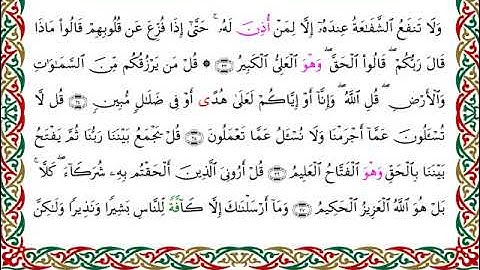 وَلَا تَنفَعُ ٱلشَّفَٰعَةُ عِندَهُۥٓ إِلَّا لِمَنْ أُذِنَ لَهُۥ ۚ حَتَّىٰٓ إِذَا فُزِّعَ عَن قُلُوبِهِمْ قَالُوا۟ مَاذَا
قَالَ رَبُّكُمْ ۖ قَالُوا۟ ٱلْحَقَّ ۖ وَهْوَ ٱلْعَلِىُّ ٱلْكَبِيرُ ۝٢٣ ۞ قُلْ مَن يَرْزُقُكُم مِّنَ ٱلسَّمَٰوَٰتِ
وَٱلْأَرْضِ ۖ قُلِ ٱللَّهُ ۖ وَإِنَّآ أَوْ إِيَّاكُمْ لَعَلَىٰ هُدًى أَوْ فِى ضَلَٰلٍ مُّبِينٍ ۝٢٤ قُل لَّا
تُسْـَٔلُونَ عَمَّآ أَجْرَمْنَا وَلَا نُسْـَٔلُ عَمَّا تَعْمَلُونَ ۝٢٥ قُلْ يَجْمَعُ بَيْنَنَا رَبُّنَا ثُمَّ يَفْتَحُ
بَيْنَنَا بِٱلْحَقِّ وَهْوَ ٱلْفَتَّاحُ ٱلْعَلِيمُ ۝٢٦ قُلْ أَرُونِىَ ٱلَّذِينَ أَلْحَقْتُم بِهِۦ شُرَكَآءَ ۖ كَلَّا ۚ
بَلْ هُوَ ٱللَّهُ ٱلْعَزِيزُ ٱلْحَكِيمُ ۝٢٧ وَمَآ أَرْسَلْنَٰكَ إِلَّا كَآفَّةً لِّلنَّاسِ بَشِيرًا وَنَذِيرًا وَلَٰكِنَّ